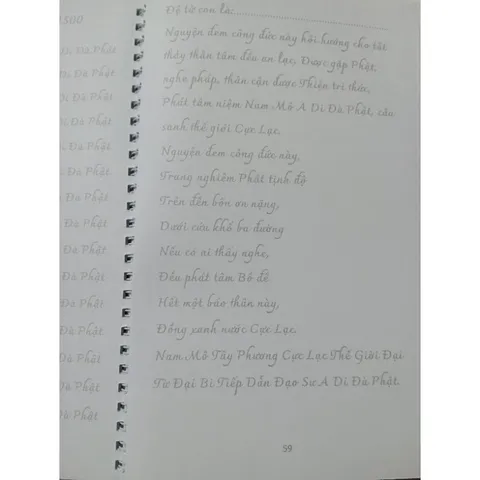 1500
Di Đà Phật
Di Đà Phật
Di Đà Phật
Đà Phật
Đà Phật
Đà Phật
Đà Phật
Đà Phật
Đà Phật
Đà Phật
Đà Phật
Đà Phật
Đà Phật
Đà Phật
Đệ tử con là:
Nguyện đem công đức này hồi hướng cho tất
thảy thân tâm đều an lạc, Được gặp Phật,
nghe pháp, thân cận được Thiện tri thức,
Phát tâm niệm Nam Mô A Di Đà Phật, cầu
sanh thế giới Cực Lạc.
Nguyện đem công đức này,
Trang nghiêm Phật tịnh độ
Trên đền bốn ơn nặng,
Dưới cứu khổ ba đường
Nếu có ai thấy nghe,
Đều phát tâm Bồ đề
Hết một báo thân này,
Đồng sanh nước Cực Lạc.
Nam Mô Tây Phương Cực Lạc Thế Giới Đại
Từ Đại Bi Tiếp Dẫn Đạo Sư A Di Đà Phật.
59